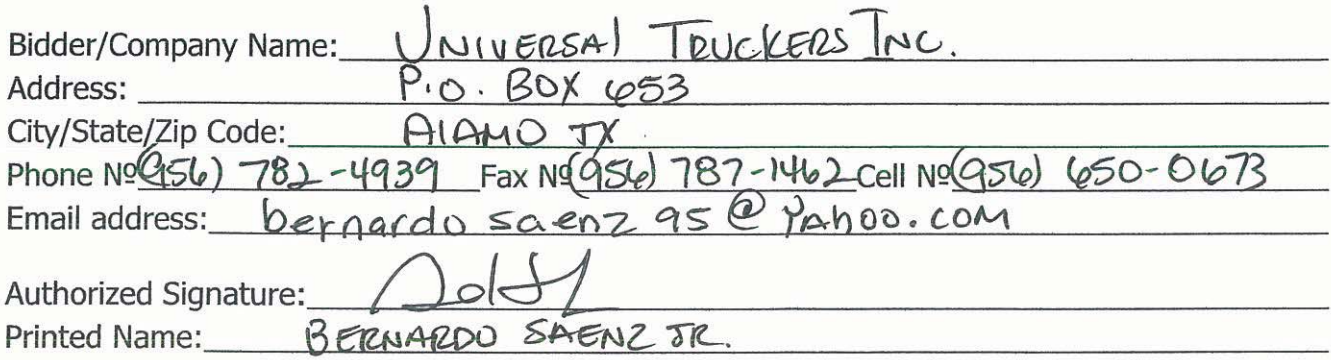 Bidder/Company Name: UNIVERSAl TRUCKERS INC.
Address: P.O. BOX 653
City/State/Zip Code: AlAMO TX
Phone Nº (956) 782-4939 Fax Nº (956) 787-1462 Cell Nº (956) 650-0673
Email address: bernardo saenz 95 @ YAhoo.com
Authorized Signature:
Printed Name: BERNARDO SAENZ JR.